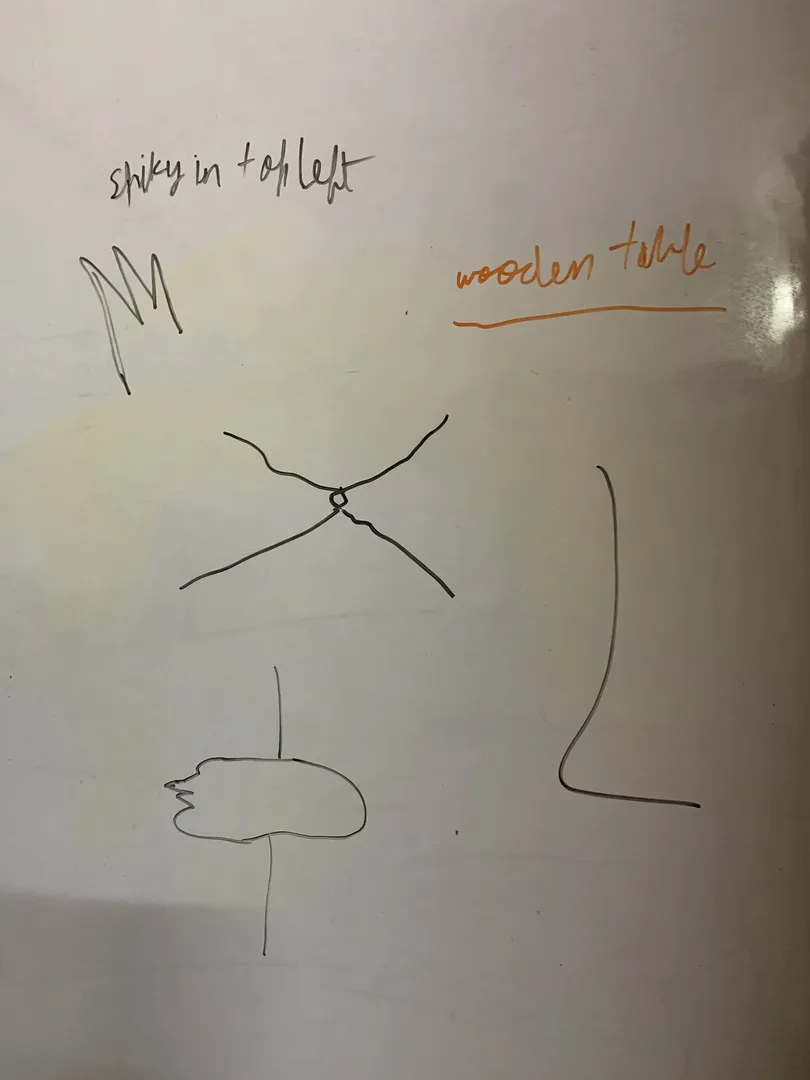 spiky in top left
wooden table